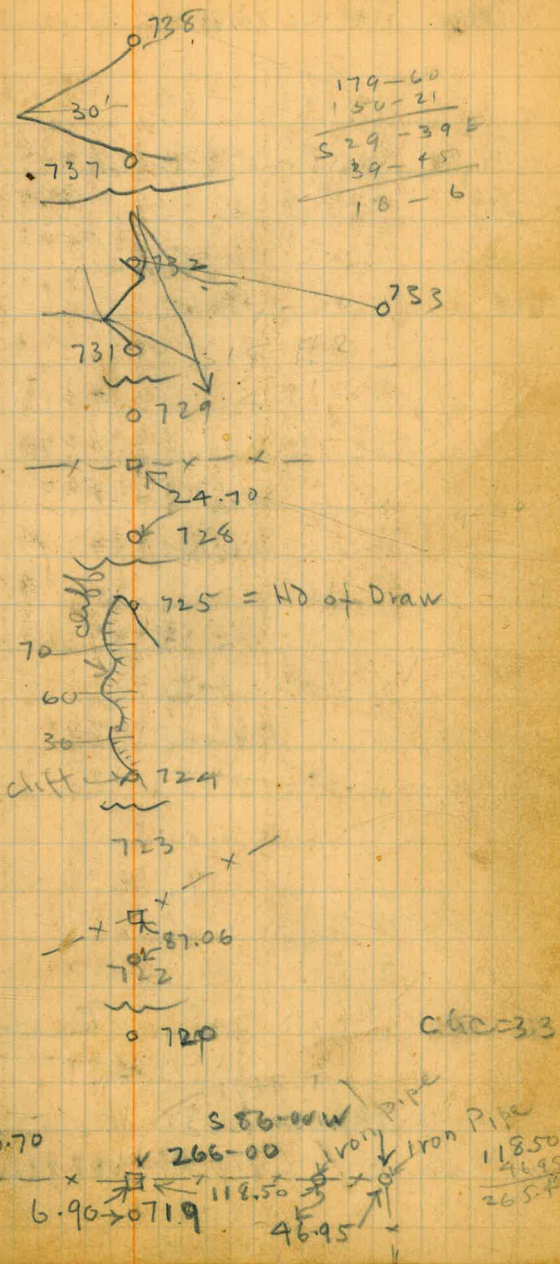 738
179-60
150-21
S 29-39 E
39-45
30'
737
732
733
731
729
24.70
728
cliff
725 = HD of Draw
70
60
30
cliff 724
723
87.06
722
720
S 86-00 W
Iron pipe
Iron Pipe
266-00
118.50
46.95
118.50
6.90 → 0719
46.95